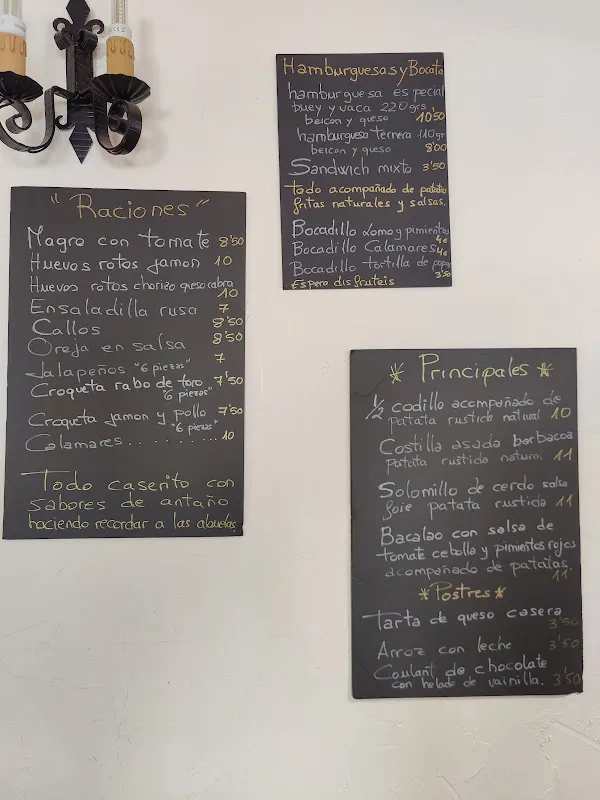 "Raciones"
Magro con tomate 8'50
Huevos rotos jamon 10
Huevos rotos chorizo queso cabra
10
Ensaladilla rusa 7
Callos 8'50
Oreja en salsa 8'50
Jalapeños "6 piezas" 7
Croqueta rabo de toro 7'50
"6 piezas"
Croqueta jamon y pollo 7'50
"6 piezas"
Calamares.......... 10
Todo caserito con
sabores de antaño
haciendo recordar a las abuelas
Hamburguesas y Bocata
hamburguesa especial
buey y vaca 220grs
beicon y queso 10'50
hamburguesa ternera 110gr
beicon y queso 8'00
Sandwich mixto 3'50
todo acompañado de patatas
fritas naturales y salsas.
Bocadillo Lomo y pimientos
4€
Bocadillo Calamares 4€
Bocadillo tortilla de papas
3'50
Espero disfruteis
* Principales *
1/2 codillo acompañado de
patata rustida natural 10
Costilla asada barbacoa
patata rustida natural 11
Solomillo de cerdo salsa
foie patata rustida 11
Bacalao con salsa de
tomate cebolla y pimientos rojos
acompañado de patatas.
11
*Postres*
Tarta de queso casera
3'50
Arroz con leche 3'50
Coulant de chocolate
con helado de vainilla. 3'50